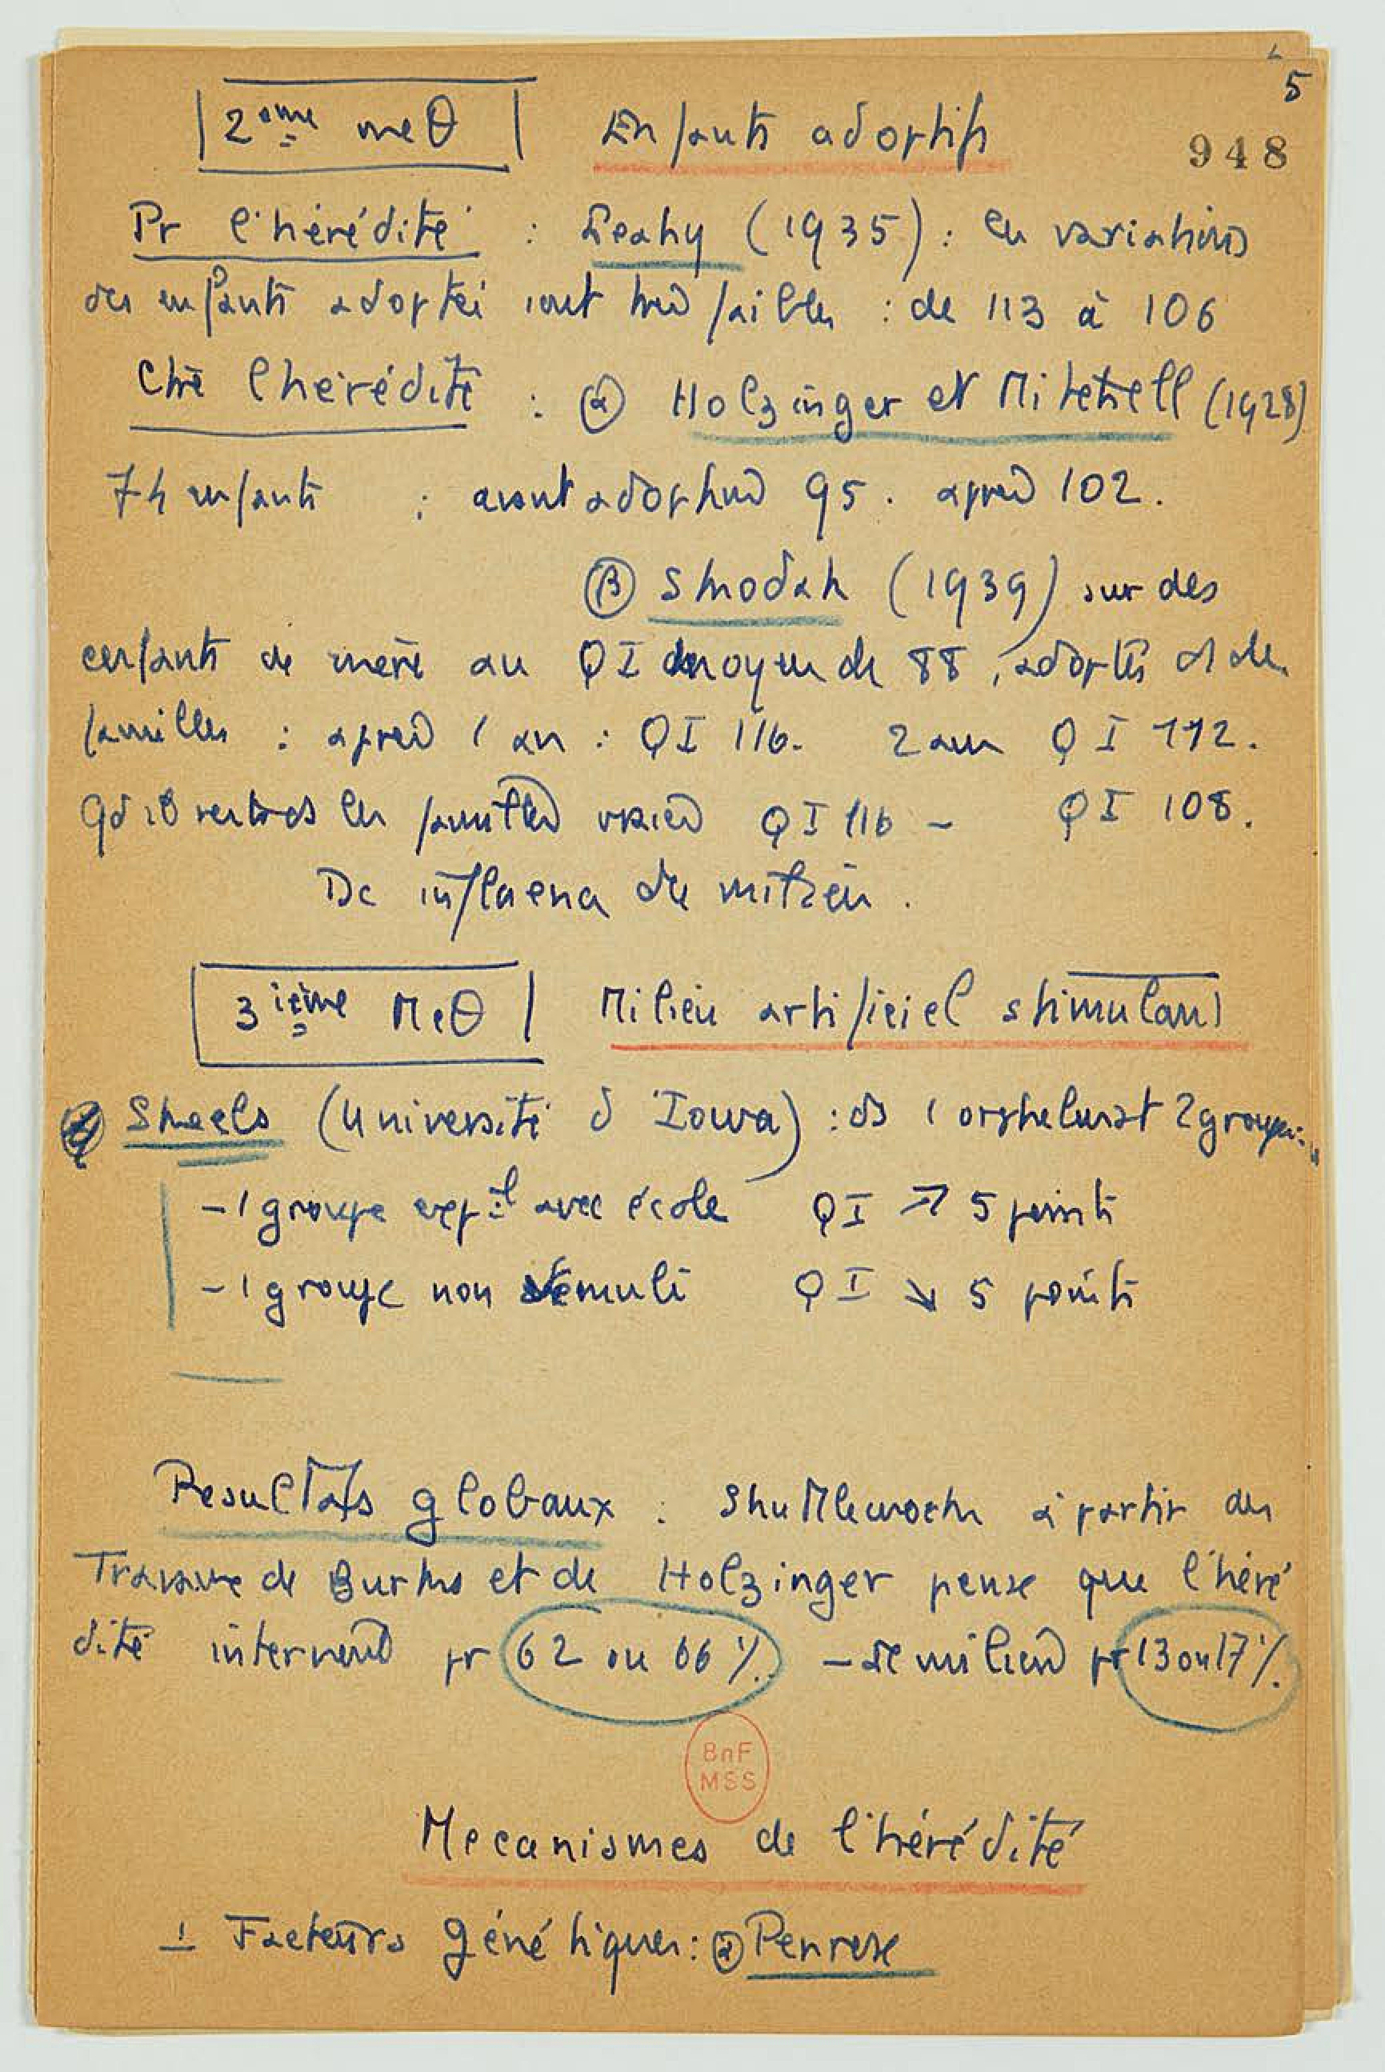 5
948
2ème meθ Enfants adoptifs
Pr l'hérédité : Leahy (1935) : les variations
des enfants adoptés sont très faibles : de 113 à 106
Ctre l'hérédité : α Holzinger et Mitchell (1928)
74 enfants : avant adoption 95. après 102.
β Skodak (1939) sur des
enfants de mère au QI moyen de 88, adoptés ds des
familles : après 1 an : QI 116. 2 ans QI 112.
familles QI 116 - QI 108.
Dc influence du milieu.
3ième Meθ Milieu artificiel stimulant
Skeels (Université d'Iowa) : ds 1 orphelinat 2 groupes :
- 1 groupe exp.tl avec école QI ↗ 5 points
- 1 groupe non stimulé QI ↘ 5 points
Resultats globaux : Shuttleworth à partir des
Travaux de Burks et de Holzinger pense que l'héré
dité intervient pr 62 ou 66 %. - Le milieu pr 13 ou 17 %.
BnF
MSS
Mecanismes de l'hérédité
1 Facteurs génétiques : α Penrose